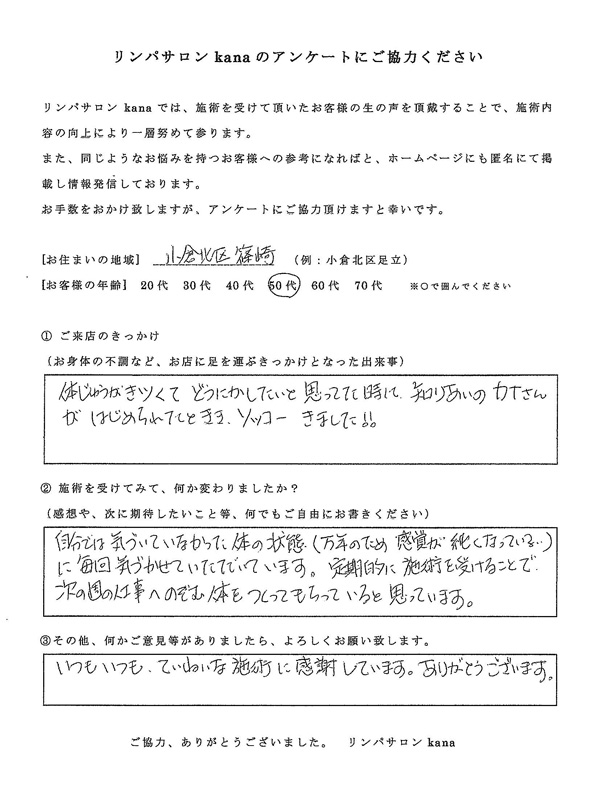 リンパサロン kana のアンケートにご協力ください
リンパサロン kana では、施術を受けて頂いたお客様の生の声を頂戴することで、施術内
容の向上により一層努めて参ります。
また、同じようなお悩みを持つお客様への参考になればと、ホームページにも匿名にて掲
載し情報発信しております。
お手数をおかけ致しますが、アンケートにご協力頂けますと幸いです。
[お住まいの地域] 小倉北区篠崎 (例:小倉北区足立)
[お客様の年齢] 20代 30代 40代 50代 60代 70代 ※〇で囲んでください
① ご来店のきっかけ
(お身体の不調など、お店に足を運ぶきっかけとなった出来事)
体じゅうがキツくて どうにかしたいと思ってた時に、知りあいのカナさん
が はじめられたときき、ソッコー きました!!
② 施術を受けてみて、何か変わりましたか?
(感想や、次に期待したいこと等、何でもご自由にお書きください)
自分では気づいていなかった体の状態、(万年のため 感覚が鈍くなっている…)
に毎回気づかせていただいています。定期的に施術を受けることで、
次の週の仕事へのぞむ体をつくってもらっていると思っています。
③その他、何かご意見等がありましたら、よろしくお願い致します。
いつもいつも、ていねいな施術に感謝しています。ありがとうございます。
ご協力、ありがとうございました。 リンパサロン kana